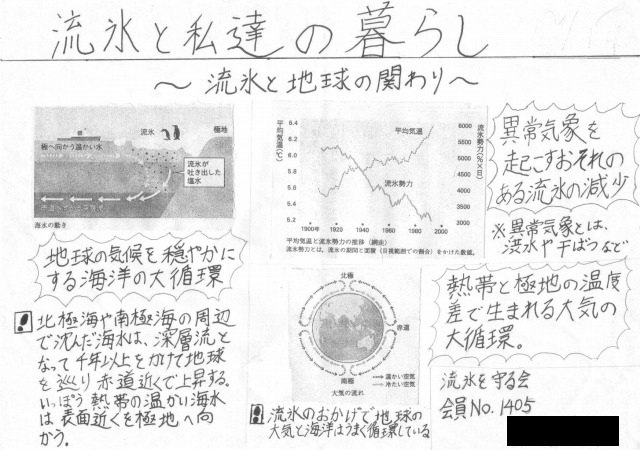 流氷と私達の暮らし
～流氷と地球の関わり～
船
流氷
極地
極へ向かう温かい水
流氷が
吐き出した
塩水
海水の動き
地球の気候を穏やかに
する海洋の大循環
北極海や南極海の周辺
で沈んだ海水は、深層流と
なって千年以上をかけて地球
を巡り赤道近くで上昇する。
いっぽう熱帯の温かい海水
は表面近くを極地へ向
かう。
平均気温(℃)
6.4
6.2
6.0
5.8
5.6
5.4
5.2
平均気温
流氷勢力
流氷勢力(%×日)
6000
5500
5000
4500
4000
3500
3000
1900年
1920
1940
1960
1980
2000
平均気温と流氷勢力の推移(網走)
流氷勢力とは、流氷の期間と面積(目視範囲での割合)をかけた数値。
北極
赤道
南極
温かい空気
冷たい空気
大気の流れ
流氷のおかげで地球の
大気と海洋はうまく循環している
異常気象を
起こすおそれの
ある流氷の減少
※異常気象とは、
洪水や干ばつなど
熱帯と極地の温度
差で生まれる大気の
大循環。
流氷を守る会
会員No.1405